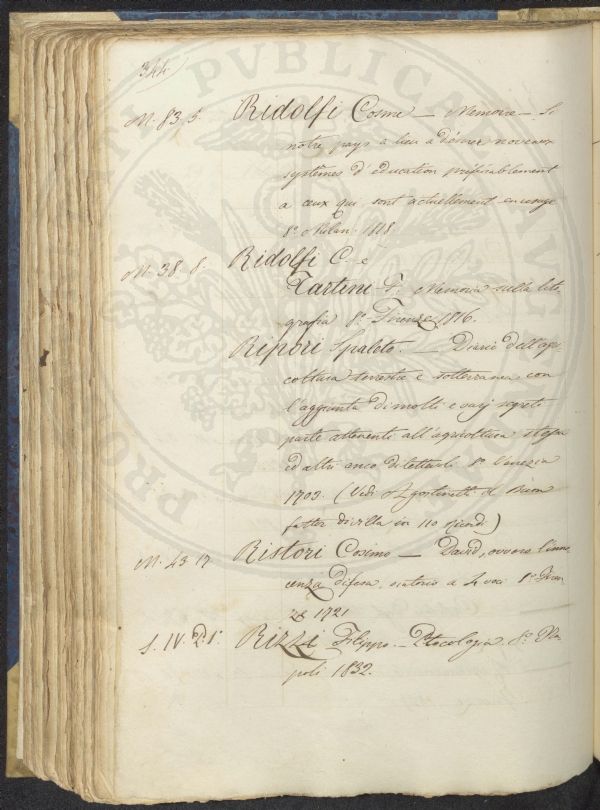 344
M. 83. 5. Ridolfi Cosme — Memoire — Si
notre pays a lieu a désirer nouveaux
systêmes d'éducation préférablement
a ceux qui sont actuellement en usage
8º Milan 1818
M. 38. 8. Ridolfi C. e
Tartini F. Memoria sulla lito-
grafia 8º Firenze 1816.
Spaleto. — Diario dell'agri-
coltura terrestre e sotterranea con
l'aggiunta di molti e varj segreti
parte attenenti all'agricoltura stessa
ed altri anco dilettevoli 8º Venezia
1703. (Vedi Agostinetti il Buon
fattor di villa, in 110 ricordi)
M. 43. 17. Ristori Cosimo — David, ovvero l'inno-
cenza difesa, oratorio a 4 voci 8º Firen-
ze 1721
S. IV. P. 1º Rizzi Filippo. — Ptocologia 8º Na-
poli 1832.
PUBLICAE